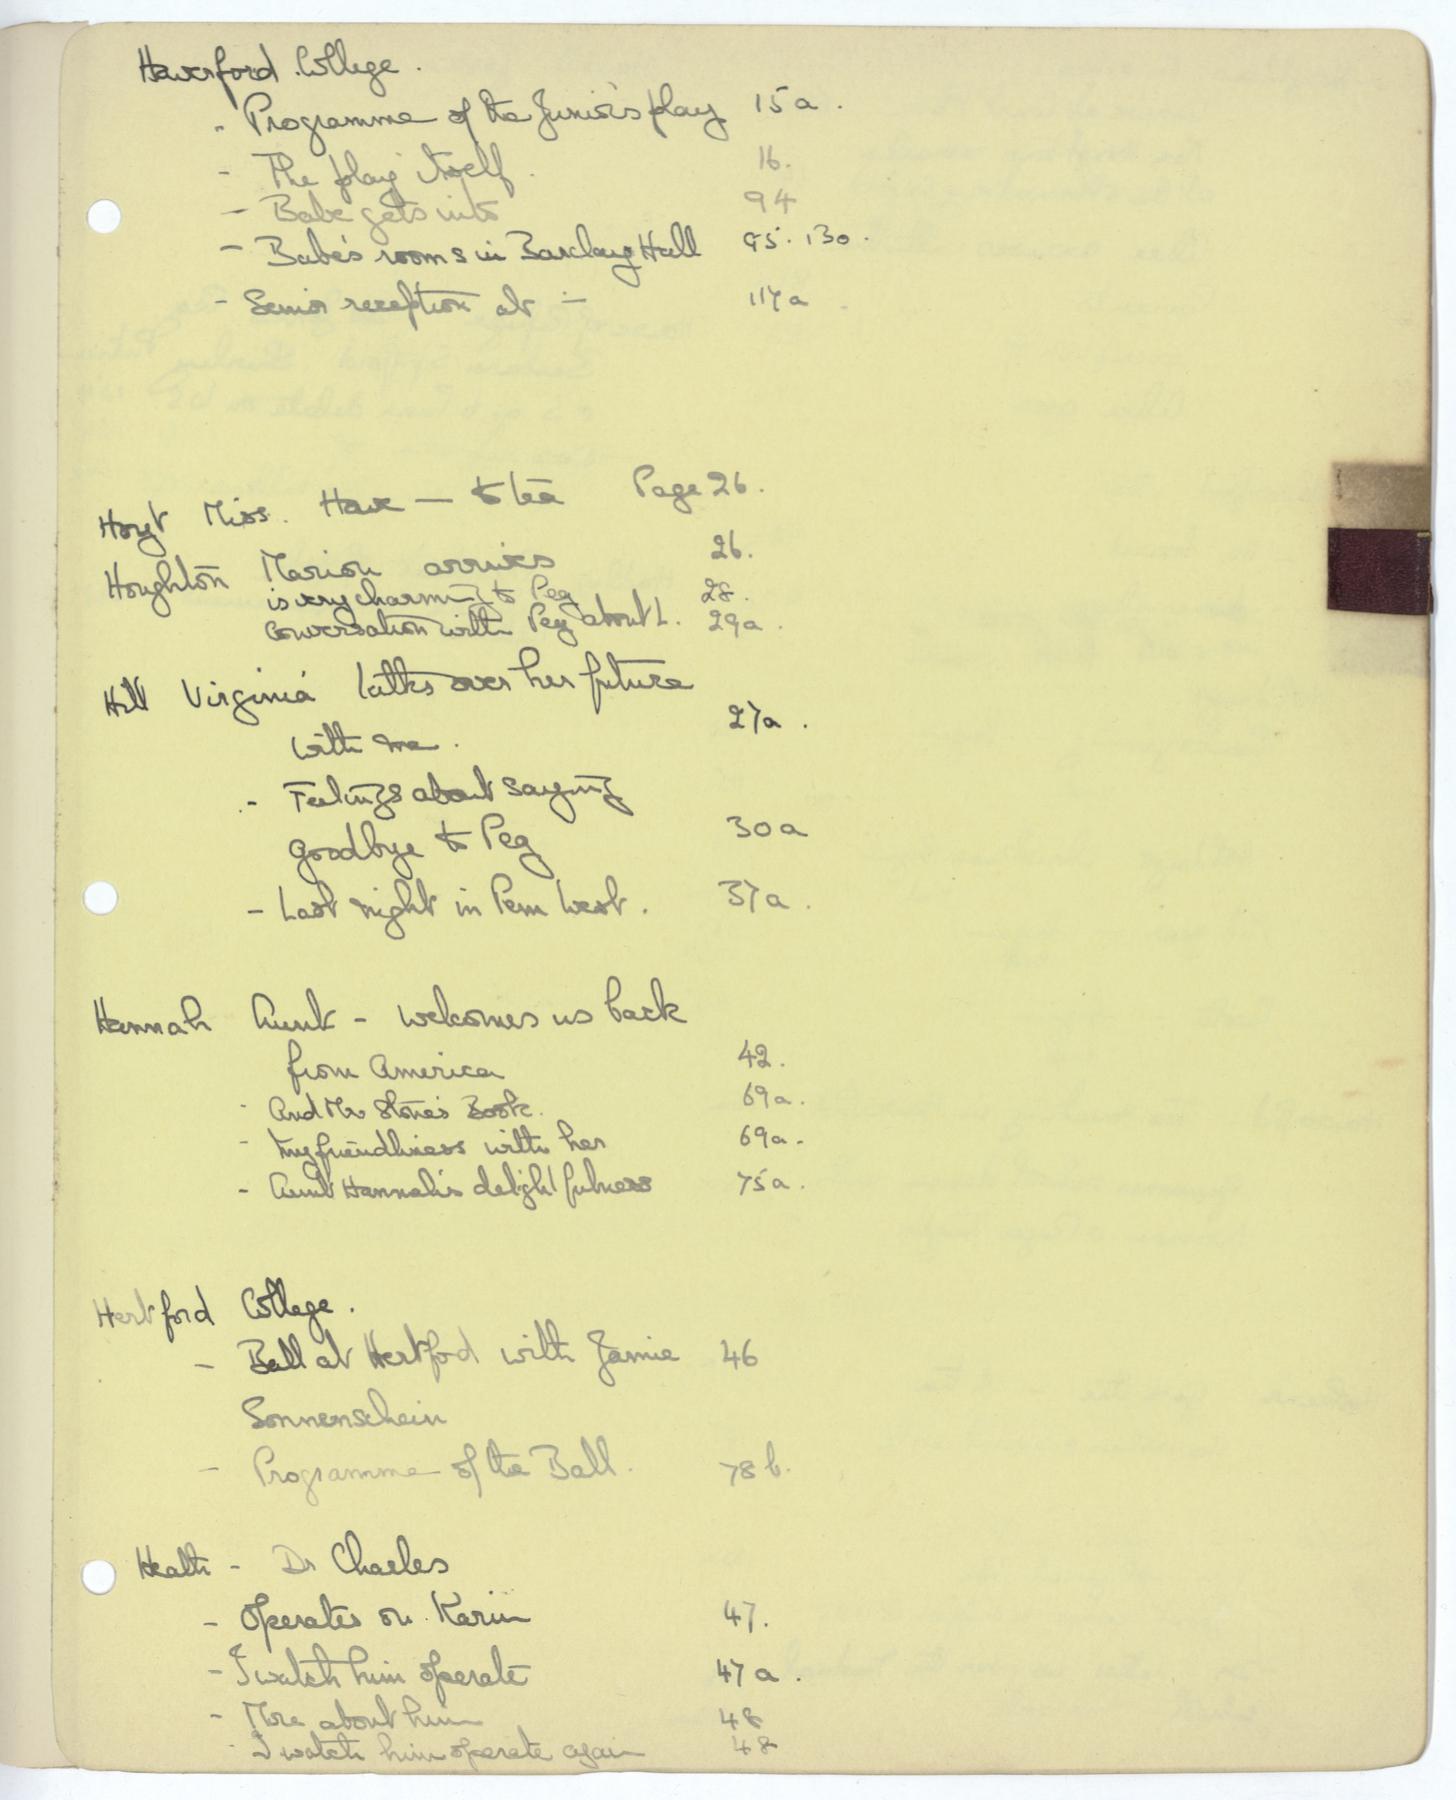 Haverford College.
- Programme of the Junior's play 15a.
- The play itself. 16.
- Babe gets into 94
- Babe's rooms in Barclay Hall 95. 130.
- Senior reception at — 117a.
Hoyt Miss. Have — to tea Page 26.
Houghton Marion arrives 26.
is very charming to Peg 28.
Conversation with Peg about L. 29a.
Hill Virginia talks over her future
with me. 27a.
- Feelings about saying
goodbye to Peg 30a
- Last night in Pem West. 37a.
Hannah Aunt - welcomes us back
from America 42.
- And Mr Stone's Book. 69a.
- My friendliness with her 69a.
- Aunt Hannah's delightfulness 75a.
Hertford College.
- Ball at Hertford with Jamie 46
Sonnenschein
- Programme of the Ball. 78b.
Health - Dr Charles
- Operates on Karin 47.
- I watch him operate 47a.
- More about him 48
- I watch him operate again 48